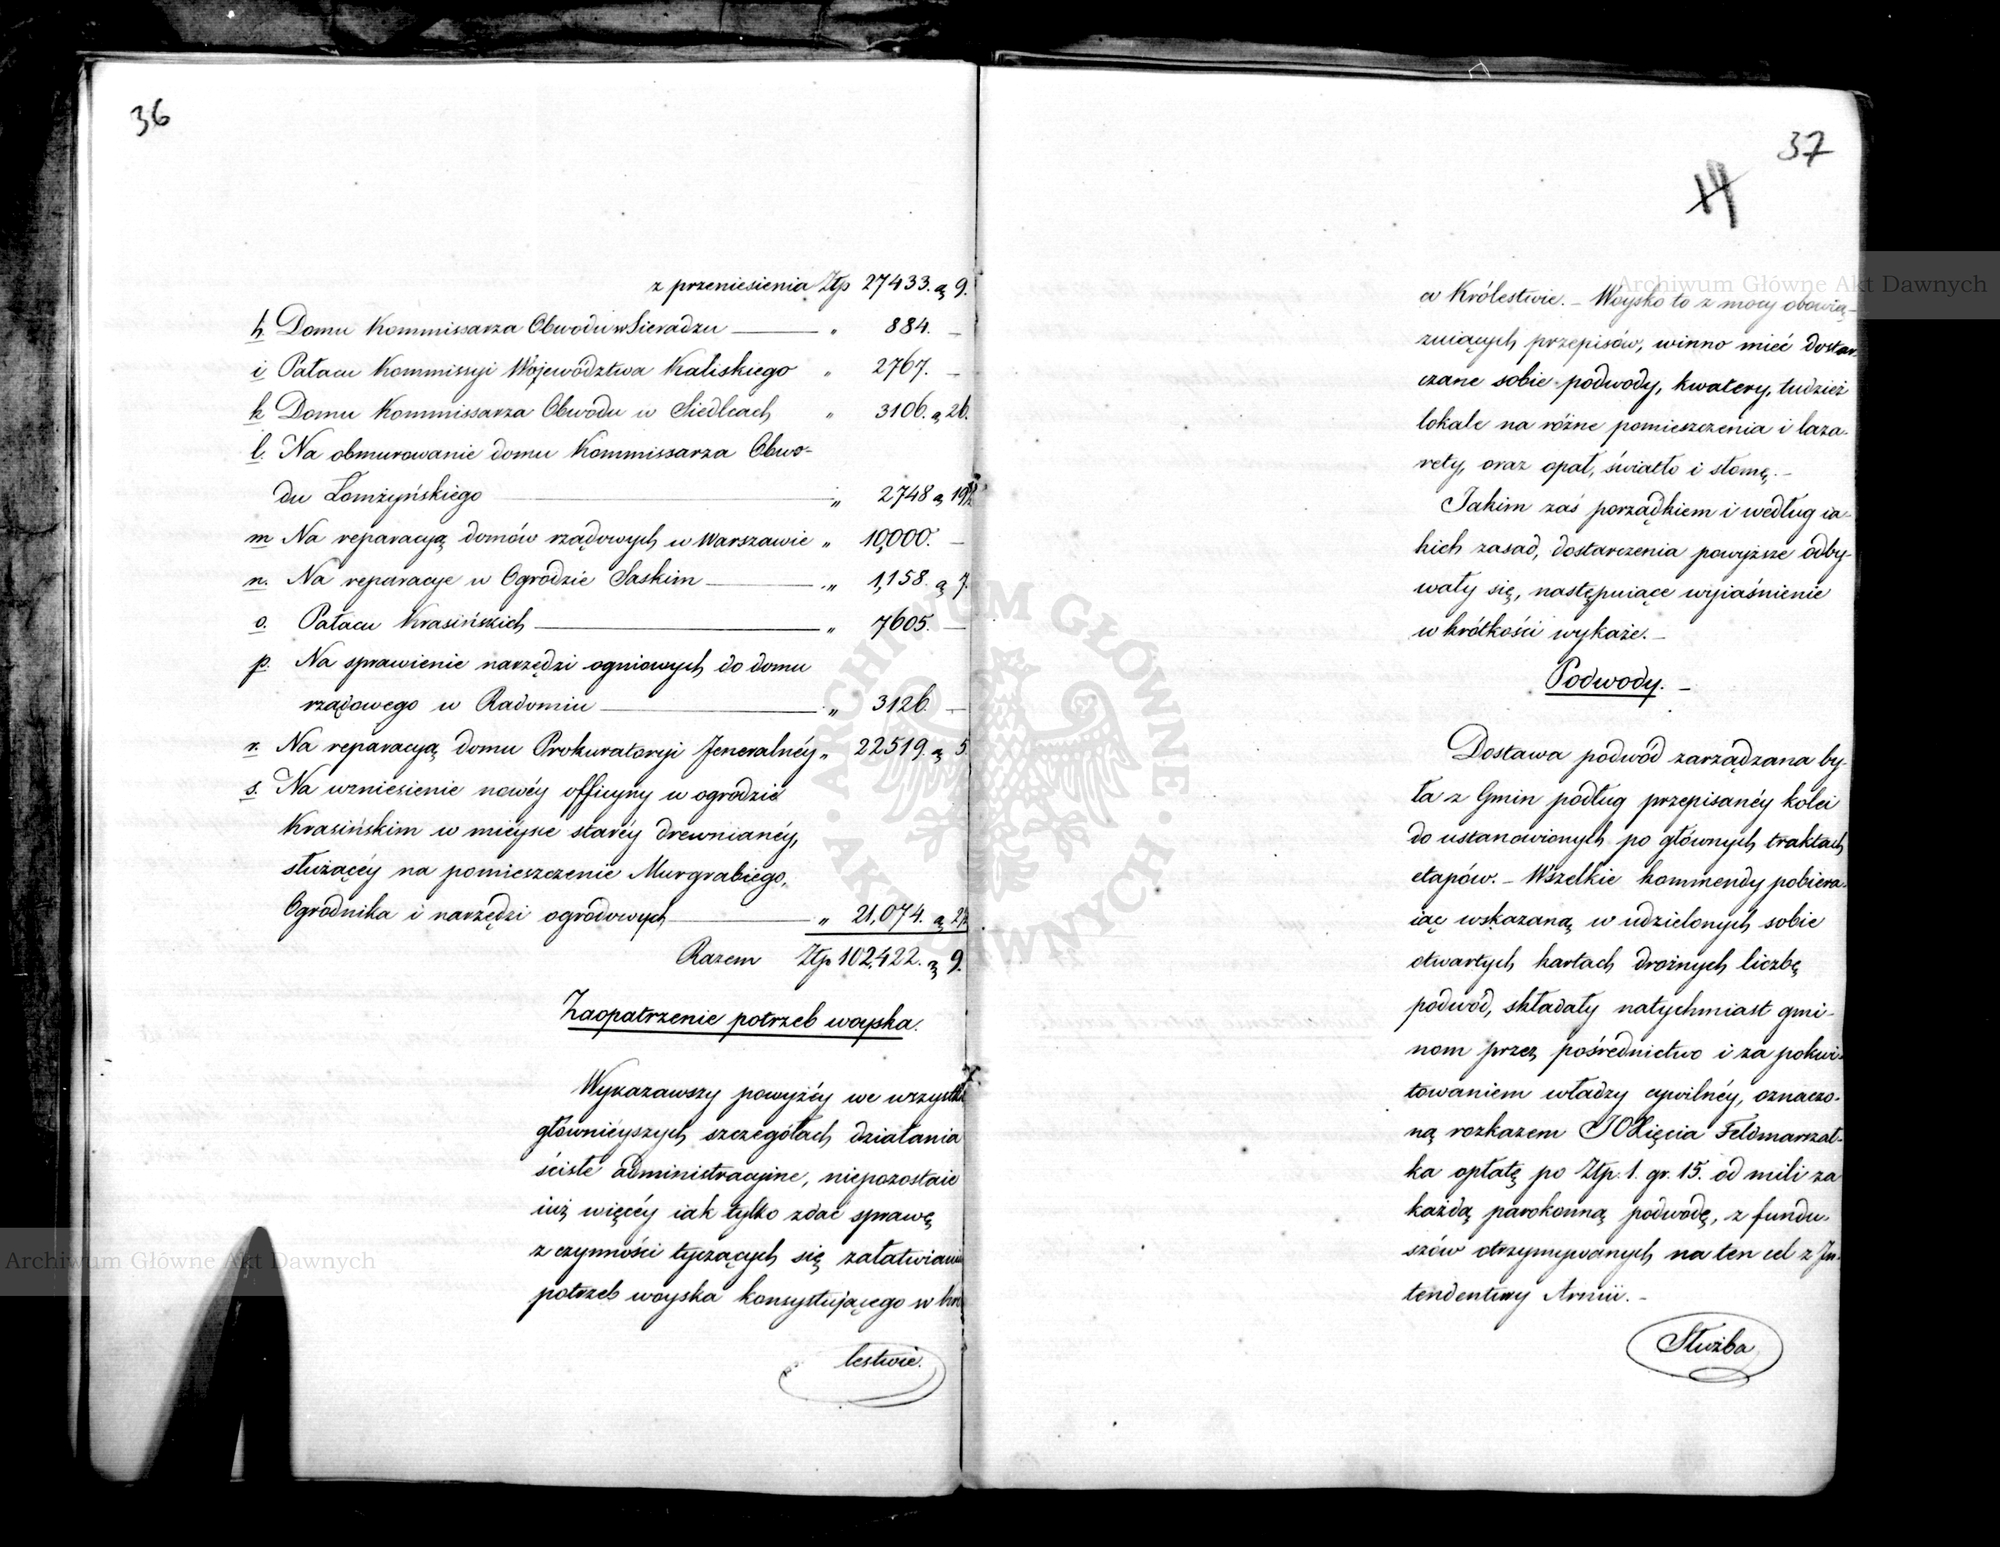 36
z przeniesienia Złp 27433. g 9.
h. Domu Kommissarza Obwodu w Sieradzu — „ 884. —
i Pałacu Kommissyi Województwa Kaliskiego „ 2767. —
k Domu Kommissarza Obwodu w Siedlcach „ 3106. g 26.
l. Na obmurowanie domu Kommissarza Obwo-
du Łomżyńskiego — „ 2748 g
m Na reparacyą domów rządowych w Warszawie „ 10,000. —
n. Na reparacye w Ogrodzie Saskim — „ 1,158. g 7.
o. Pałacu Krasińskich — „ 7605. —
p. Na sprawienie narzędzi ogniowych do domu
rządowego w Radomiu — „ 3126. —
r. Na reparacyą domu Prokuratoryi Jeneralnéy „ 22519. g 5.
s. Na wzniesienie nowéy officyny w ogrodzie
Krasińskim w mieysce staréy drewnianéy,
służącéy na pomieszczenie Murgrabiego,
Ogrodnika i narzędzi ogrodowych — „ 21,074. g
Razem Złp 102,422. g 9.
Zaopatrzenie potrzeb woyska.
Wykazawszy powyżéy we wszystkich
główniéyszych szczegółach działania
ściśle administracyjne, niepozostaie
iuż więcéy iak tylko zdać sprawę
z czynności tyczących się załatwiania
potrzeb woyska konsystującego w Kró
lestwie.
37
w Królestwie. – Woysko to z mocy obowią-
zuiących przepisów, winno mieć dostar-
czane sobie podwody, kwatery, tudzież
lokale na różne pomieszczenia i laza-
rety, oraz opał, światło i słomę. –
Jakim zaś porządkiem i według ia-
kich zasad, dostarczenia powyższe odby-
wały się, następuiące wyiaśnienie
w krótkości wykaże. –
Podwody. –
Dostawa podwód zarządzana by-
ła z Gmin podług przepisanéy kolei
do ustanowionych po głównych traktach
etapów. – Wszelkie kommendy pobiera-
iąc wskazaną w udzielonych sobie
otwartych kartach drożnych liczbę
podwód, składały natychmiast gmi-
nom przez pośrednictwo i za pokwi-
towaniem władzy cywilnéy, oznaczo-
ną rozkazem JOXięcia Feldmarszał-
ka opłatę po Złp. 1. gr. 15. od mili za
każdą parokonną podwodę, z fundu-
szów otrzymywanych na ten cel z In-
tendentury Armii. –
Służba
Archiwum Główne Akt Dawnych
Archiwum Główne Akt Dawnych
ARCHIWUM GŁÓWNE · AKT DAWNYCH ·